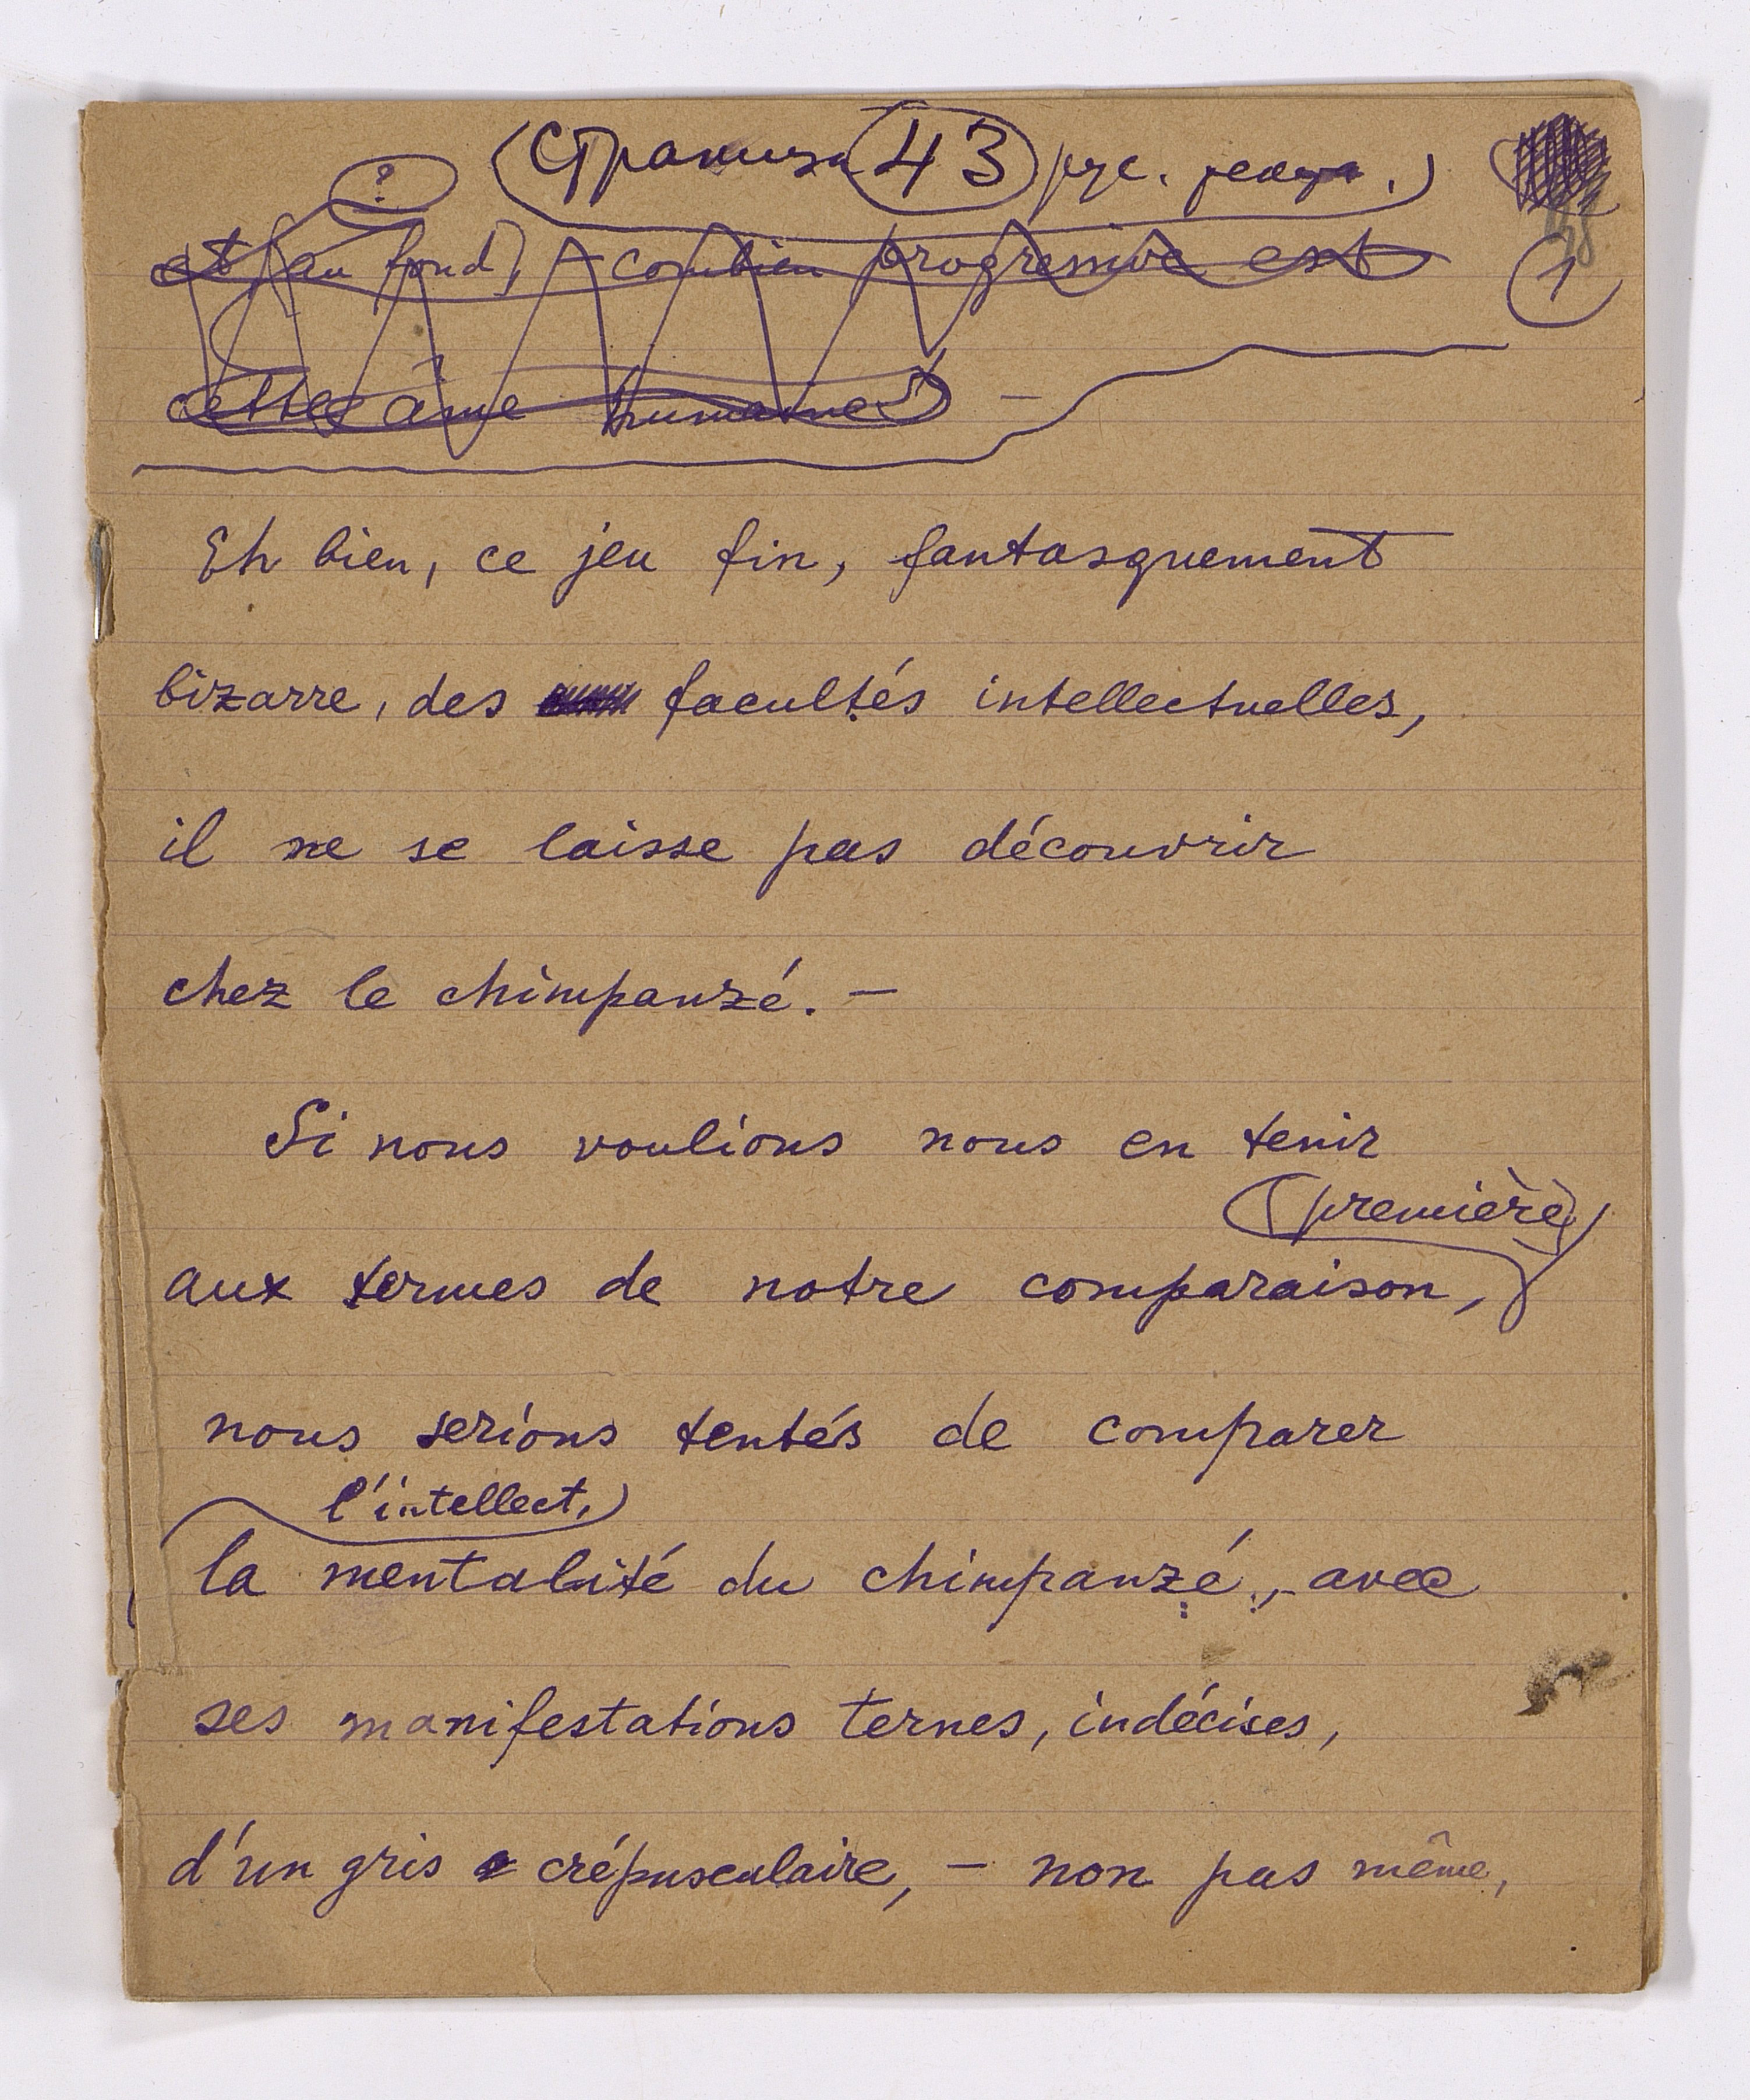 (Страница 43 рус. редак.)
?
1
et (au fond) – combien progressive est
cette âme humaine) –
Eh bien, ce jeu fin, fantasquement
bizarre, des facultés intellectuelles,
il ne se laisse pas découvrir
chez le chimpanzé. –
Si nous voulions nous en tenir
(première)
aux termes de notre comparaison,
nous serions tentés de comparer
l'intellect,)
la mentalité du chimpanzé, – avec
ses manifestations ternes, indécises,
d'un gris crépusculaire, – non pas même,